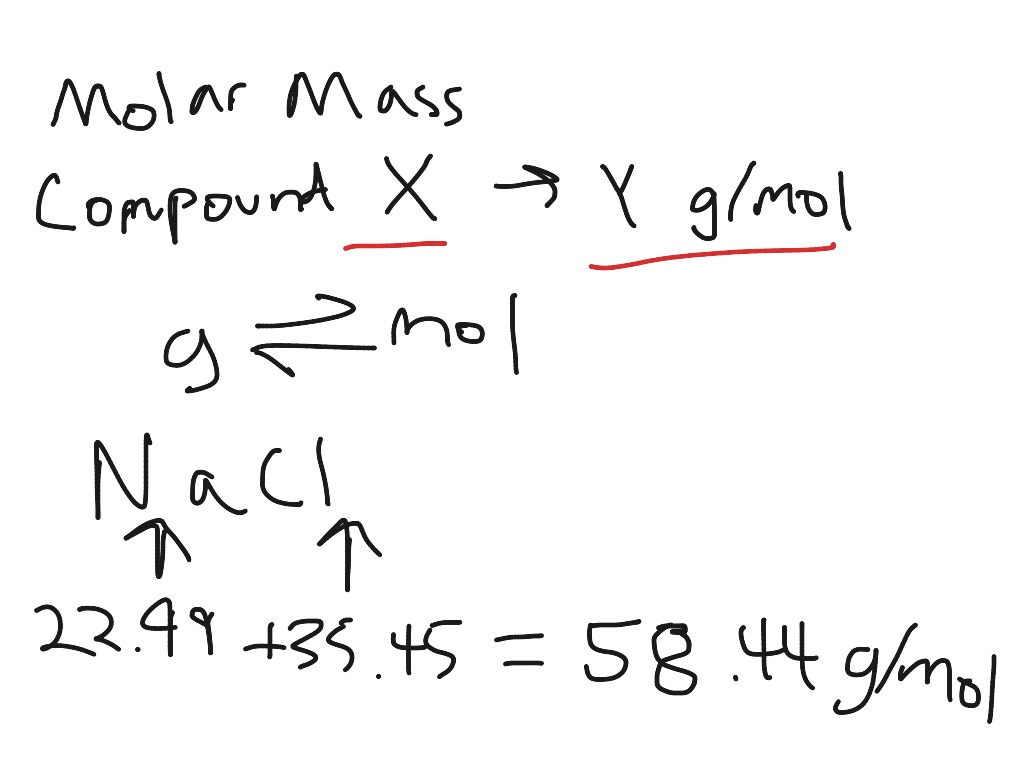 Molar Mass
Compound X → Y g/mol
g ⇌ mol
NaCl
22.99 + 35.45 = 58.44 g/mol